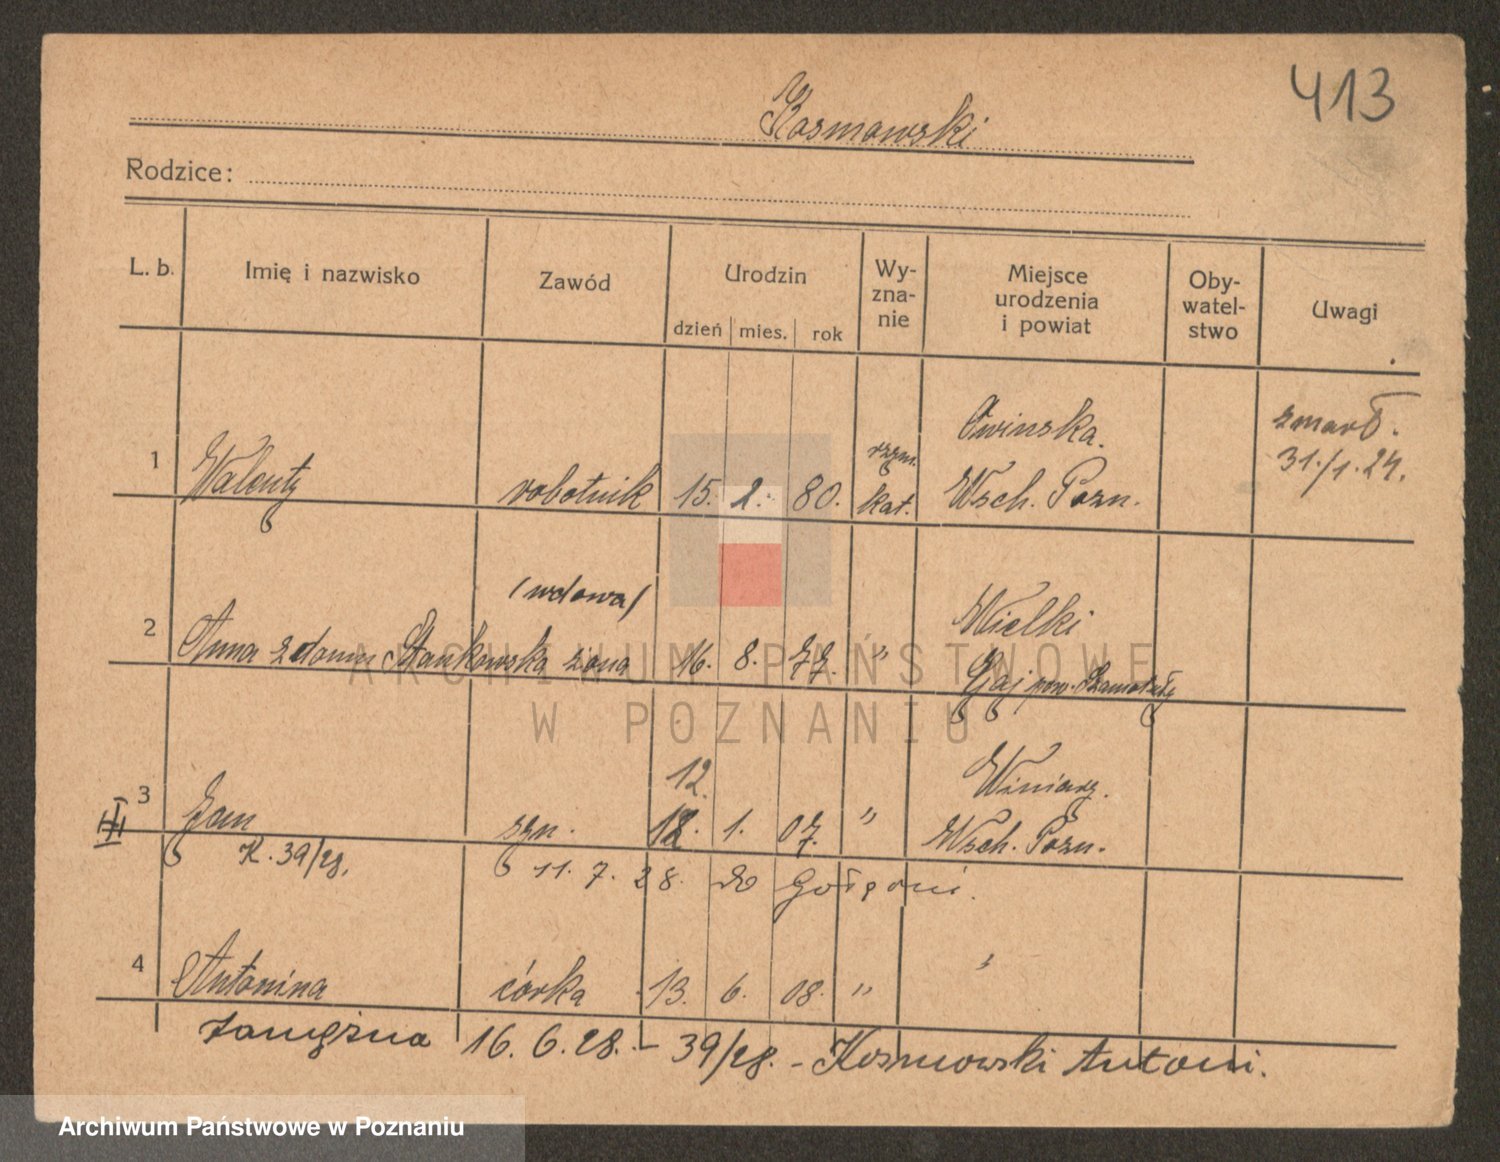 413
Kosmowski
Rodzice:
L. b. Imię i nazwisko Zawód Urodzin Wy-zna-nie Miejsce urodzenia i powiat Oby-watel-stwo Uwagi
dzień mies. rok
Owinska. zmarł.
1 Walenty robotnik 15. 2. 80. rzym. kat. Wsch. Pozn. 31./1. 24.
(wdowa) Wielki
2 Anna z domu Stankowska żona 16. 8. 77. " Gaj pow. Szamotuły
12. Winiary.
3 Jan syn. 12. 1. 07. " Wsch. Pozn.
III
K. 39/28. 11. 7. 28. do
4 Antonina córka 13. 6. 08. " "
zamężna 16. 6. 28. – 39/28. – Kosmowski Antoni.
ARCHIWUM PAŃSTWOWE
W POZNANIU
Archiwum Państwowe w Poznaniu